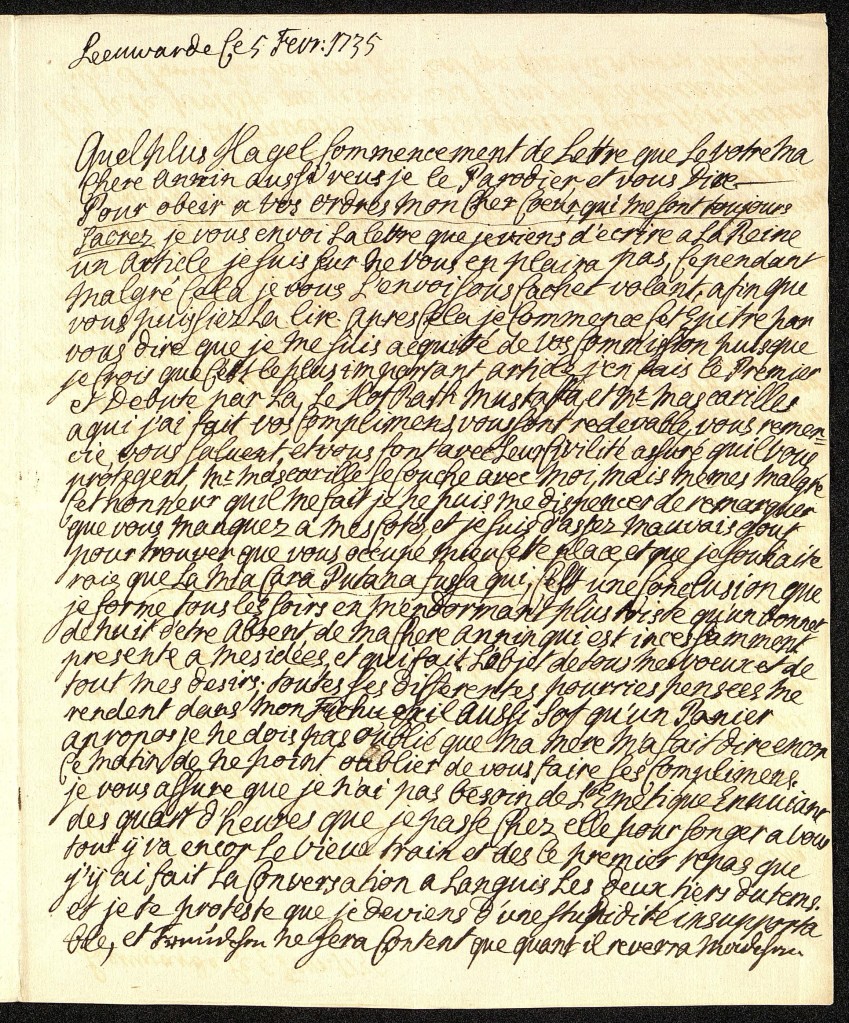 Leeuwarde Ce 5 Fevr: 1735
Quel plus Hagel Commencement de Lettre que Le votre Ma
Chere Annin aussi veus je le Parodier et vous Dire
Pour obeir a vos ordres mon Cher Coeur, qui me sont toujours
Sacrez je vous envoi La lettre que je viens d'écrire a La Reine
un Article je suis sur ne vous en plaira pas, Cependant
malgré Cela je vous L'envoi sous Cachet volant, afin que
vous puissiez La lire. apres Cela je Commence Cet Epitre par
vous dire que je me suis acquitté de vos Commission puisque
je Crois que C'est le plus important article j'en fais le Premier
et Debute par La, Le Hof Rath Mustaffa et Mr Mascarilles
a qui j'ai fait vos Complimens vous sont redevable, vous remer=
cie, vous saluent, et vous font avec Leur Civilité assuré qu'il vous
protegent, Mr Mascarille Se Couche avec moi, mais mêmes malgré
Cet honneur qu'il me fait je ne puis me dispencer de remarquer
que vous manquez a mes Cotés, et je suis d'assez mauvais gout
pour trouver que vous occupé mieu Cette place, et que je souhaite
rais que La Mia Cara Putana fussa qui, C'est une Conclusion que
je forme tous les soirs en m'endormant plus triste qu'un bonnet
de nuit d'etre Absent de Ma Chere Annin qui est incessamment
presente a mes idées, et qui fait L'objet de tous mes voeux et de
tout mes desirs; toutes ses differentes pourries pensées me
rendent dans mon aussi Sot qu'un Panier
apropos je ne dois pas oublié que ma mere m'a fait dire encor
Ce matin de ne point oublier de vous faire ses Complimens.
je vous assure que je n'ai pas besoin de L'Emetique Ennuiant
des quart d'heures que je passe Chez elle pour songer a vous
tout y va encor Le vieux train et des le premier repas que
j'y ai fait La Conversation a Languis Les deux tiers du tems.
et je te proteste que je deviens d'une stupidité insupporta
ble, et ne sera Content que quant il reverra